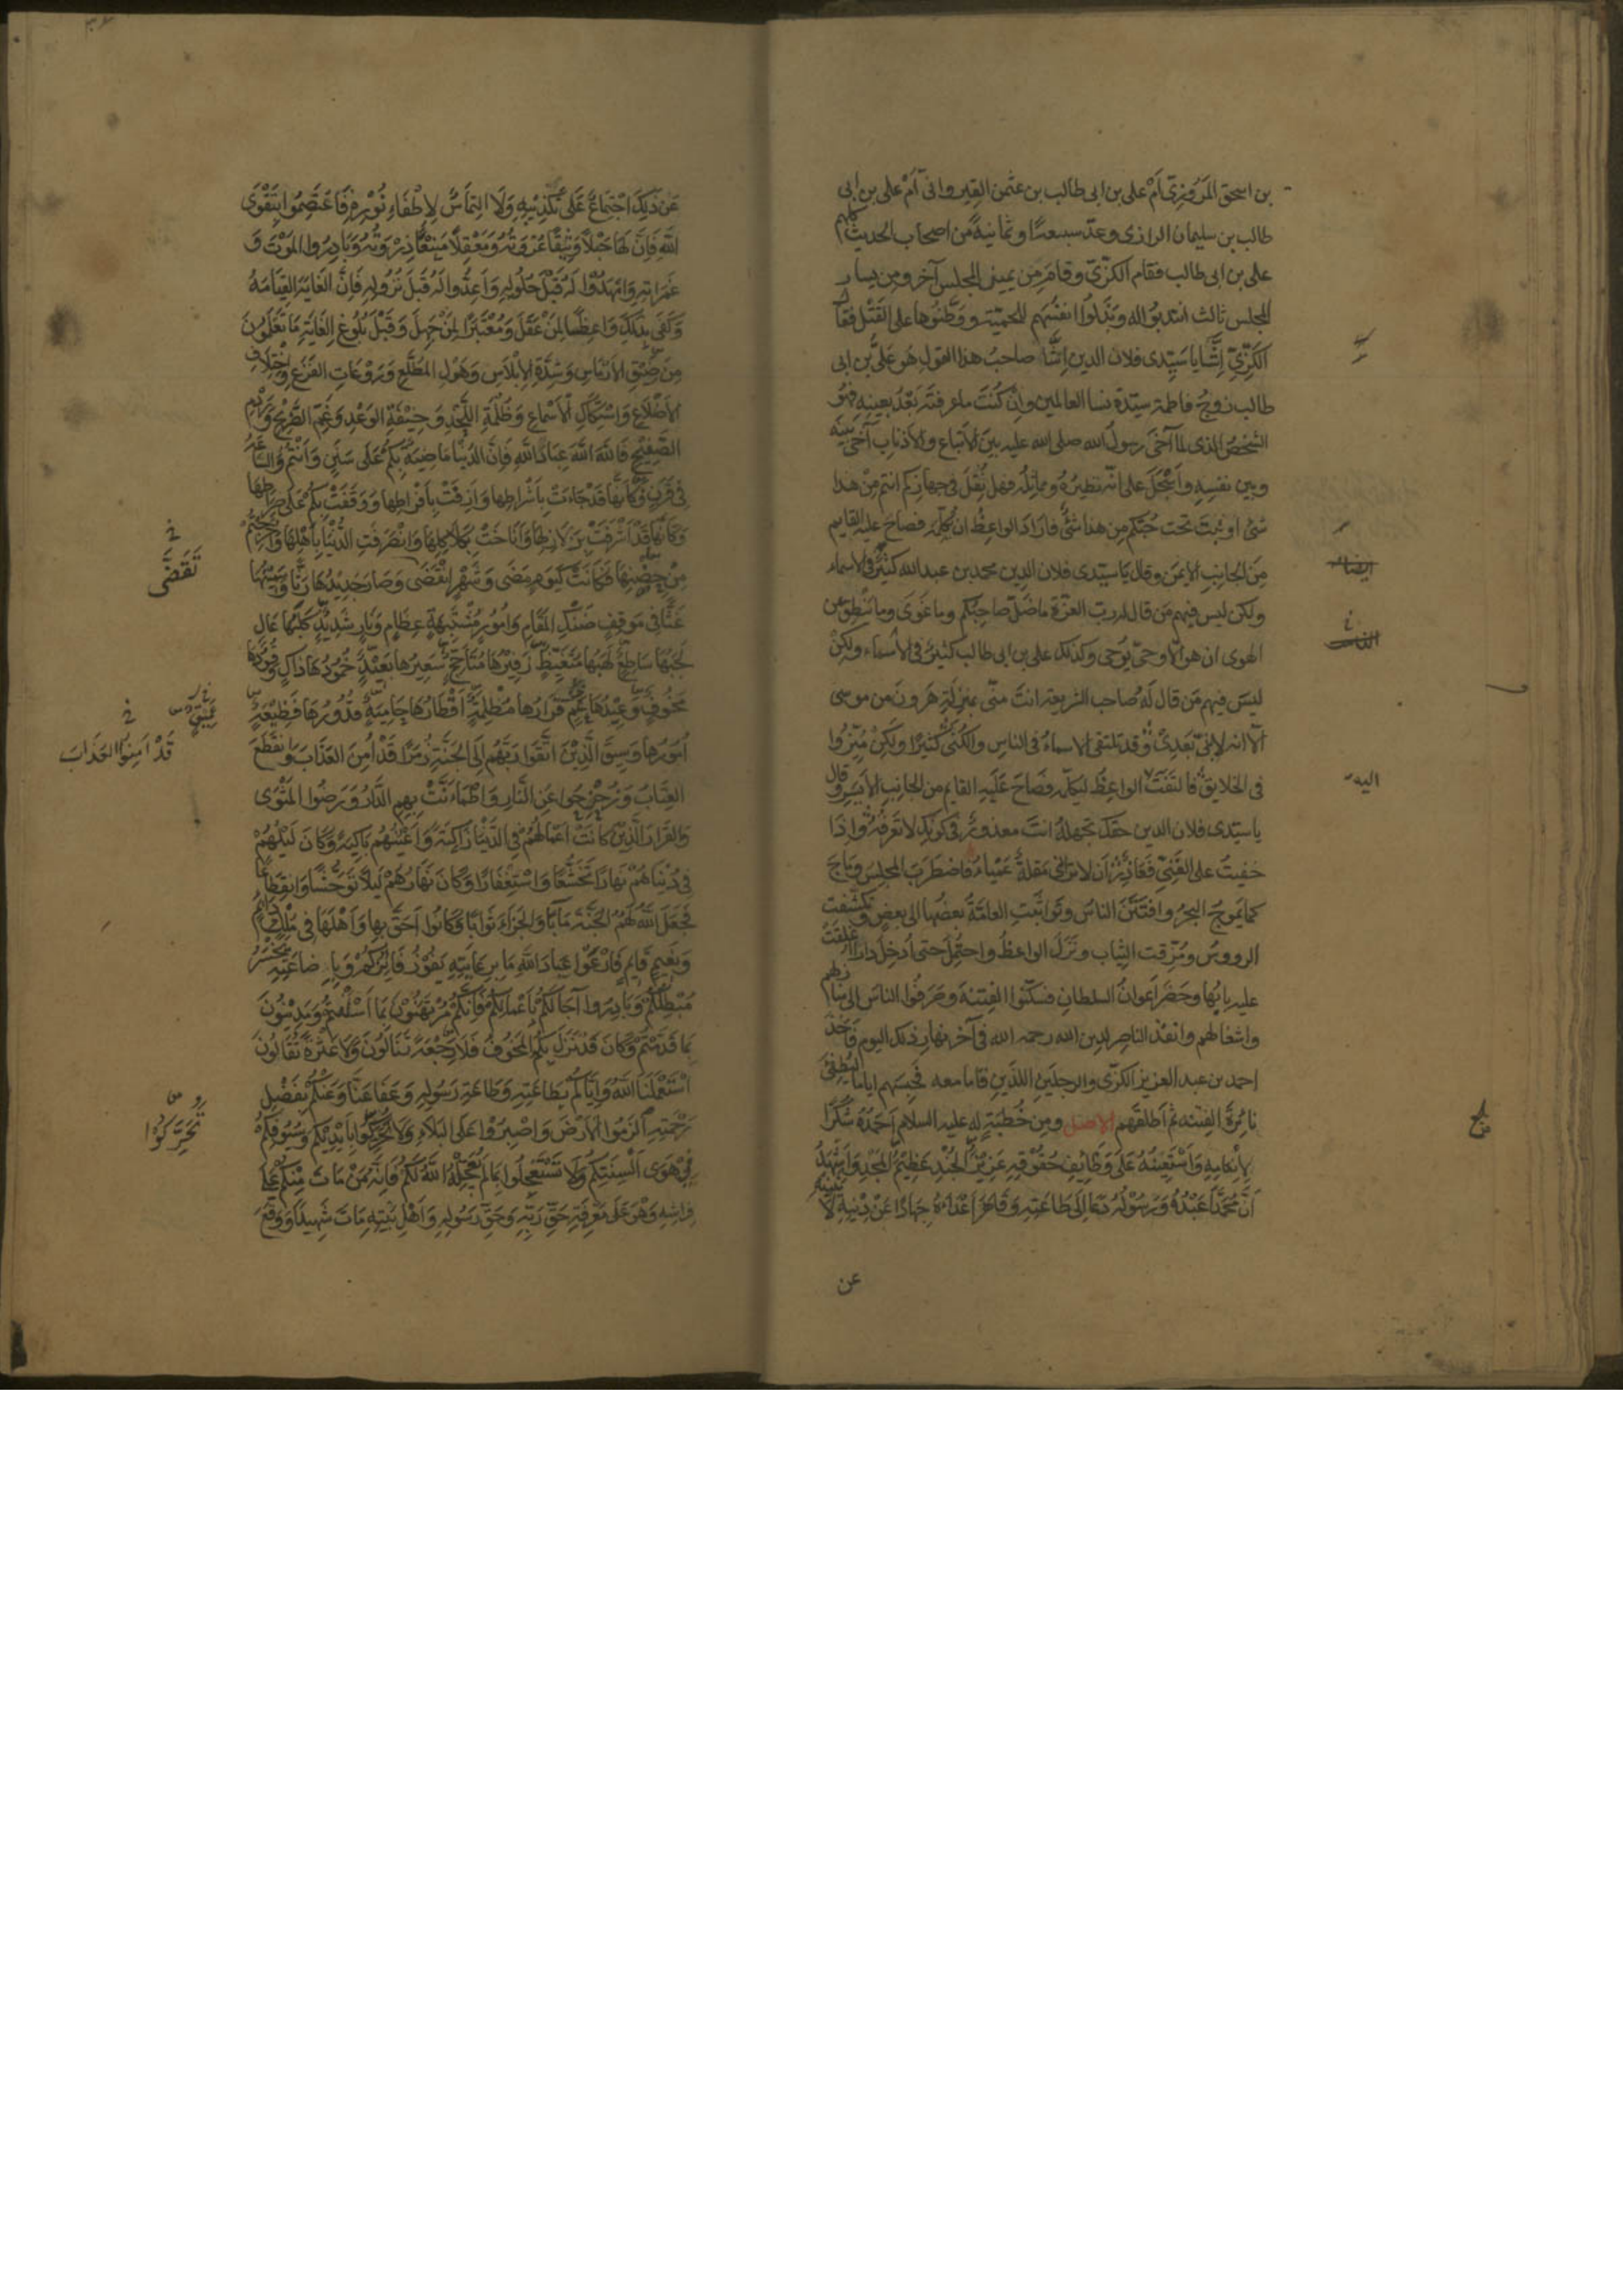 بن اسحق المروزى أم على بن ابى طالب بن عثمن القيروانى أم على بن ابى
طالب بن سليمان الرازى وعدّ سبعة او ثمانية من اصحاب الحديث كلهم
على بن ابى طالب فقام الكزّى وقام من يمين المجلس آخر ومن يسار
المجلس ثالث انتدبوا له وبذلوا انفسهم للحمية ووطّنوها على القتل فقال
الكزّى إشّا يا سيّدى فلان الدين اشّا صاحب هذا القول هو علىّ بن ابى
طالب زوج فاطمة سيّدة نسا العالمين وإن كنت ما عرفته بعد بعينه فهو
الشخص الذى لما آخى رسول الله صلى الله عليه بين الأتباع والأذناب آخى بينه
وبين نفسه وأسجل على انّه نظيره ومماثله فهل نُقل فى جهازكم انتم من هذا
شئ او نبت تحت خبّكم من هذا شئ فاراد الواعظ ان يكلّمه فصاح عليه القايم
من الجانب الأيمن وقال يا سيّدى فلان الدين محمد بن عبد الله كثيرٌ فى الاسماء
ولكن ليس فيهم من قال له ربّ العزّة ما ضلّ صاحبكم وما غوى وما ينطق عن
الهوى ان هو الّا وحىٌ يوحى وكذلك على بن ابى طالب كثيرٌ فى الأسماء ولكن
ليس فيهم من قال له صاحب الشريعة انت منّى بمنزلة هرون من موسى
الّا انه لا نبىّ بعدى وقد تلتقى الاسماء فى الناس والكُنى كثيرًا ولكن مُيّزوا
فى الخلايق فالتفت الواعظ ليكلّمه فصاح عليه القايم من الجانب الأيسر وقال
يا سيّدى فلان الدين حقّك تجهله انت معذور فى كونك لا تعرفه واذا
خفيت على الغبىّ فعاذرٌ أن لا ترانى مقلة عمياء فاضطرب المجلس وماج
كما يموج البحر وافتتن الناس وتواثبت العامّة بعضها الى بعض وتكشّفت
الرووس ومزّقت الثياب ونزل الواعظ واحتمل حتى أدخل دارًا اغلقت
عليه بابها وحضر أعوان السلطان فسكّنوا الفتنة وصرفوا الناس الى منازلهم
واشغالهم وانفذ الناصر لدين الله رحمه الله فى آخر نهار ذلك اليوم فاخذ
احمد بن عبد العزيز الكزّى والرجلين اللذين قاما معه فحبسهم اياما ليطفئ
نائرة الفتنه ثم أطلقهم الاصل ومن خطبة له عليه السلام أحمده شكرًا
لإنعامه وأستعينه على وظائف حقوقه عزيز الجند عظيم المجد وأشهد
أنّ محمّدًا عبده ورسوله دعا إلى طاعته وقاهر أعداءه جهادًا عن دينه لا يثنيه
عن
اليه
عن ذلك اجتماعٌ على تكذيبه ولا التماسٌ لإطفاء نوره فاعتصموا بتقوى
الله فإنّ لها حبلًا وثيقًا عروته ومعقلًا منيعًا ذروته وبادروا الموت و
غمراته وامهدوا له قبل حلوله وأعدّوا له قبل نزوله فإنّ الغاية القيامة
وكفى بذلك واعظًا لمن عقل ومعتبرًا لمن جهل وقبل بلوغ الغاية ما تعلمون
من ضيق الأرماس وشدّة الإبلاس وهول المطّلع وروعات الفزع واختلاف
الأضلاع واستكاك الأسماع وظلمة اللحد وخيفة الوعد وغمّ الضريح وردم
الصفيح فالله الله عباد الله فإنّ الدنيا ماضية بكم على سنن وأنتم والساعة
فى قرن وكأنّها قد جاءت بأشراطها وأزفت بأفراطها ووقفت بكم على صراطها
وكأنّها قد أشرفت بزلازلها وأناخت بكلاكلها وانصرفت الدنيا بأهلها وأخرجتهم
من حضنها فكانت كيوم مضى وشهر انقضى وصار جديدها رثًّا وسمينها
غثًّا فى موقف ضنك المقام وأمور مشتبهة عظام ونار شديد كلبها عال
لجبها ساطع لهبها متغيّظ زفيرها متأجّج سعيرها بعيد خمودها ذاكٍ وقودها
مخوفٍ وعيدها عمٍ قرارها مظلمة أقطارها حامية قدورها فظيعة
أمورها وسيق الذين اتّقوا ربّهم إلى الجنّة زمرًا قد أمن العذاب وانقطع
العتاب وزحزحوا عن النّار واطمأنّت بهم الدّار ورضوا المثوى
والقرار الّذين كانت أعمالهم فى الدنيا زاكية وأعينهم باكية وكان ليلهم
فى دنياهم نهارًا تخشّعًا واستغفارًا وكان نهارهم ليلًا توحّشًا وانقطاعًا
فجعل الله لهم الجنّة مآبًا والجزاء ثوابًا وكانوا أحقّ بها وأهلها فى ملك دائم
ونعيم قائم فارعوا عباد الله ما برعايته يفوز فائزكم وبإضاعته يخسر
مبطلكم وبادروا آجالكم بأعمالكم فإنّكم مرتهنون بما أسلفتم ومدينون
بما قدّمتم وكأن قد نزل بكم المخوف فلا رجعة تنالون ولا عثرة تقالون
استعملنا الله وإيّاكم بطاعته وطاعة رسوله وعفا عنّا وعنكم بفضل
رحمته الزموا الأرض واصبروا على البلاء ولا تحرّكوا بأيديكم وسيوفكم
فى هوى ألسنتكم ولا تستعجلوا بما لم يعجّله الله لكم فإنّه من مات منكم على
فراشه وهو على معرفة حقّ ربّه وحقّ رسوله وأهل بيته مات شهيدًا ووقع
تَقَضَّى
قَدْ أمِنوا العذاب
تَحَرَّكُوا